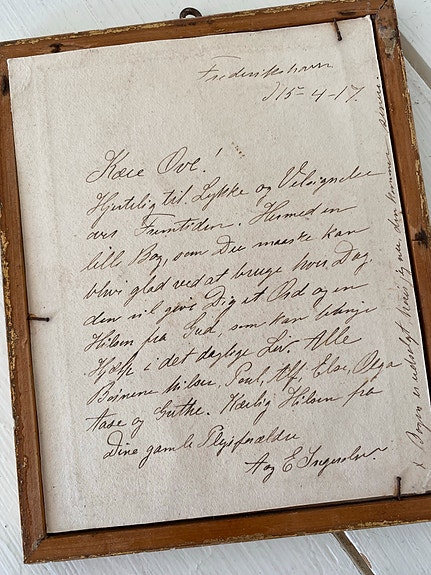 Frederikshavn
d 15-4-17.
Kære Ove!
Hjertelig til Lykke og Velsignelse
ovs Fremtiden. Hermed en
lille Bog, som Du maaske kan
blive glad ved at bruge hver Dag
den vil give Dig et Ord og en
Hilsen fra Gud, som kan bringe
Hjælp i det daglige Liv. Alle
Børnene hilser, Poul, Alf, Else, Olga
Aase og Grethe. Kærlig Hilsen fra
Dine gamle Plejeforældre
A og E
x Bogen er udsolgt